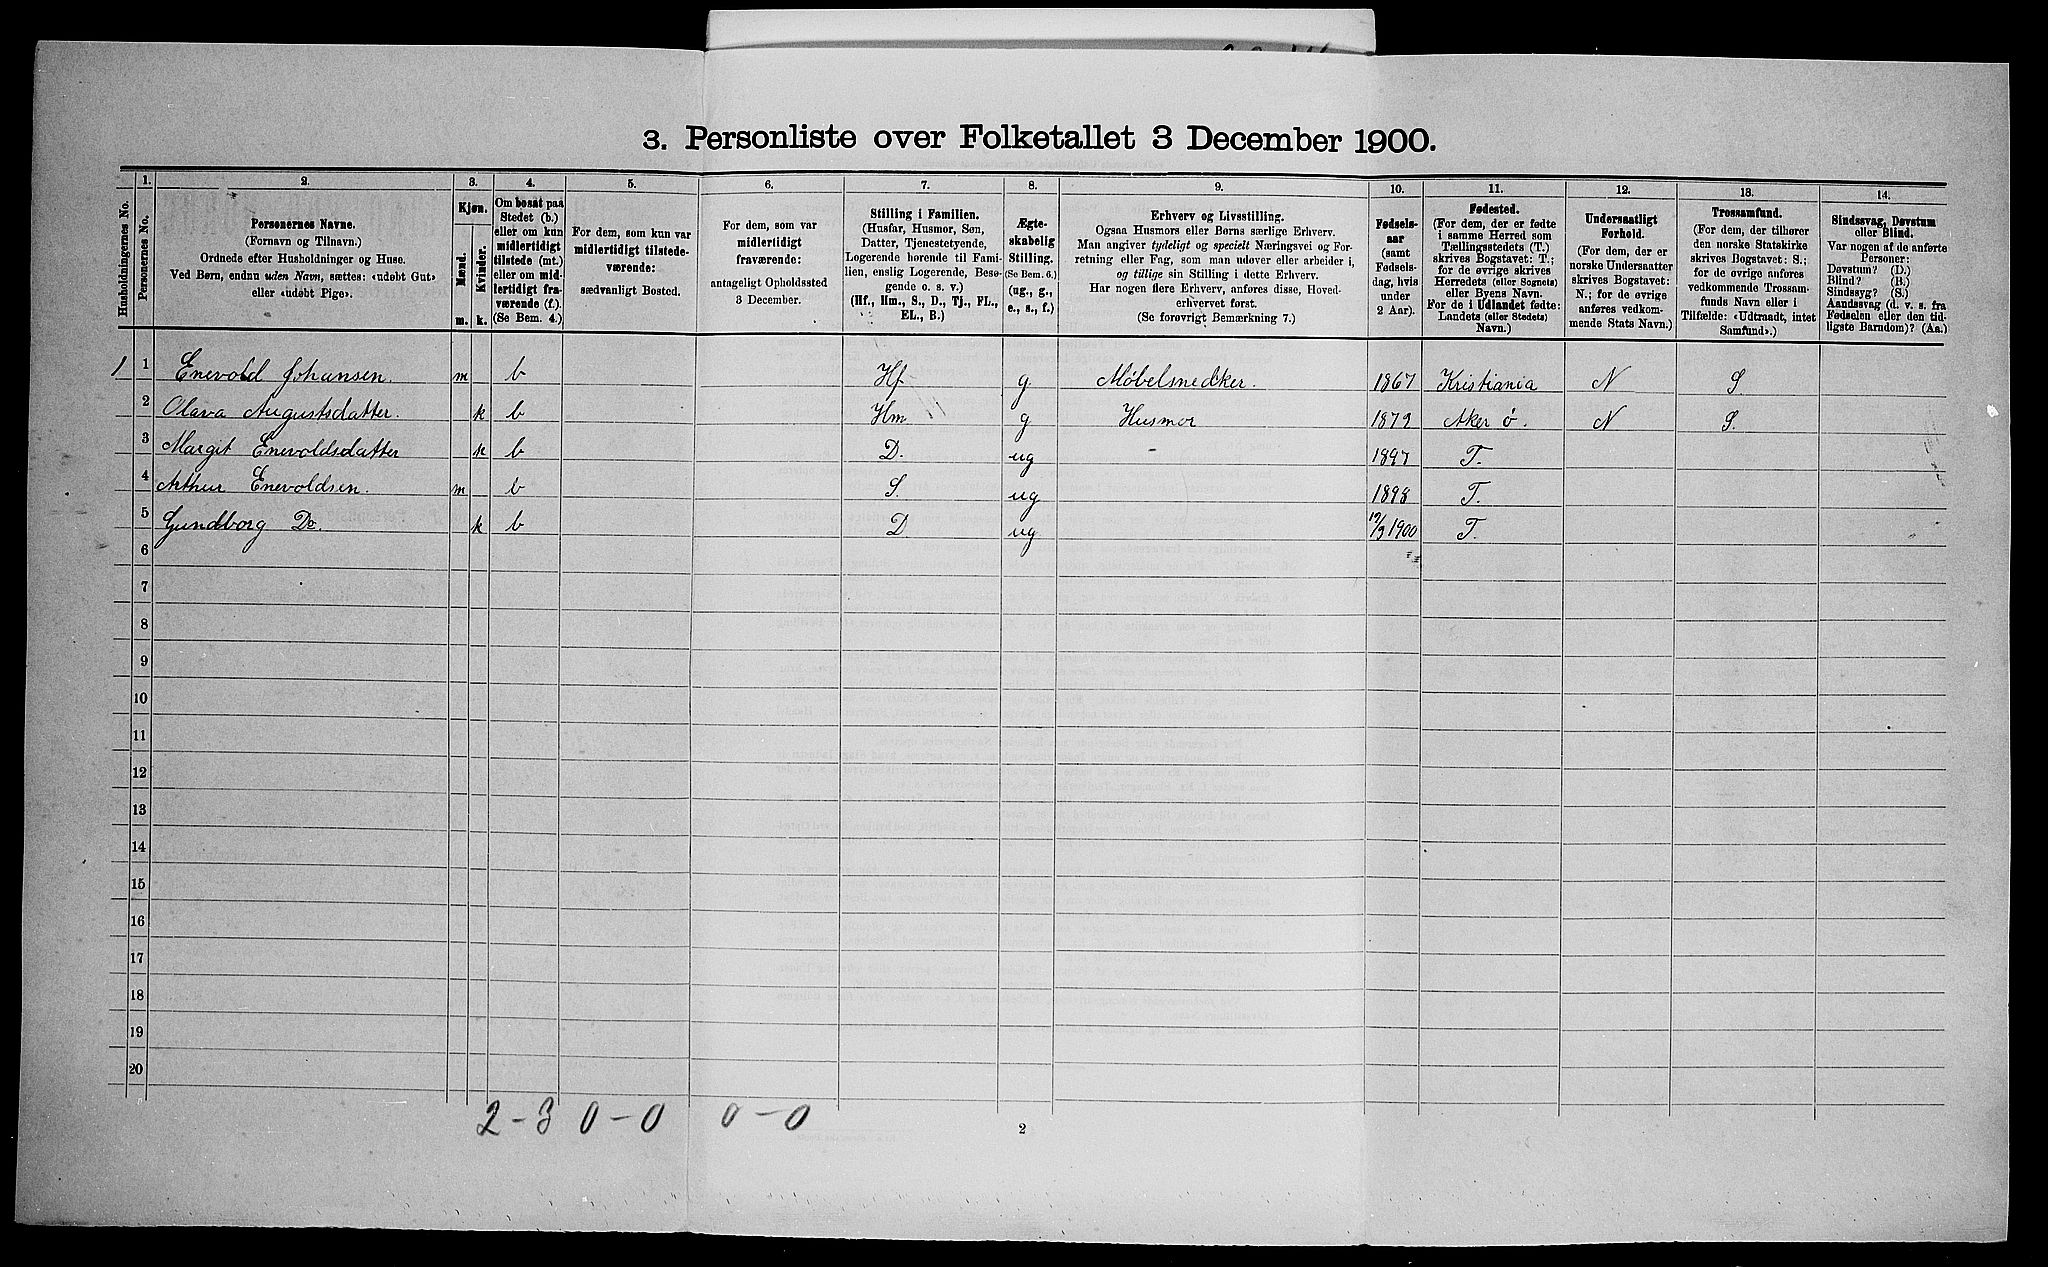 3. Personliste over Folketallet 3 December 1900.
Husholdningernes No.
1.
Personernes No.
2.
Personernes Navne.
(Fornavn og Tilnavn.)
Ordnede efter Husholdninger og Huse.
Ved Børn, endnu uden Navn, sættes: «udøbt Gut»
eller «udøbt Pige».
3.
Kjøn.
Mænd.
Kvinder.
m. k.
4.
Om bosat paa
Stedet (b.)
eller om kun
midlertidigt
tilstede (mt.)
eller om mid-
lertidigt fra-
værende (f.).
(Se Bem. 4.)
5.
For dem, som kun var
midlertidigt tilstede-
værende:
sædvanligt Bosted.
6.
For dem, som var
midlertidigt
fraværende:
antageligt Opholdssted
3 December.
7.
Stilling i Familien.
(Husfar, Husmor, Søn,
Datter, Tjenestetyende,
Logerende hørende til Fami-
lien, enslig Logerende, Besø-
gende o. s. v.)
(Hf., Hm., S., D., Tj., FL.,
EL., B.)
8.
Ægte-
skabelig
Stilling.
(Se Bem. 6.)
(ug., g.,
e., s., f.)
9.
Erhverv og Livsstilling.
Ogsaa Husmors eller Børns særlige Erhverv.
Man angiver tydeligt og specielt Næringsvei og For-
retning eller Fag, som man udøver eller arbeider i,
og tillige sin Stilling i dette Erhverv.
Har nogen flere Erhverv, anføres disse, Hoved-
erhvervet først.
(Se forøvrigt Bemærkning 7.)
10.
Fødsels-
aar
(samt
Fødsels-
dag, hvis
under
2 Aar).
11.
Fødested.
(For dem, der er fødte
i samme Herred som
Tællingsstedets (T.)
skrives Bogstavet: T.;
for de øvrige skrives
Herredets (eller Sognets)
eller Byens Navn.
For de i Udlandet fødte:
Landets (eller Stedets)
Navn.)
12.
Undersaatligt
Forhold.
(For dem, der er
norske Undersaatter
skrives Bogstavet:
N.; for de øvrige
anføres vedkom-
mende Stats Navn.)
13.
Trossamfund.
(For dem, der tilhører
den norske Statskirke
skrives Bogstavet: S.;
for de øvrige anføres
vedkommende Trossam-
funds Navn eller i
Tilfælde: «Udtraadt, intet
Samfund».)
14.
Sindssvag, Døvstum
eller Blind.
Var nogen af de anførte
Personer:
Døvstum? (D.)
Blind? (B.)
Sindssyg? (S.)
Aandssvag (d. v. s. fra
Fødselen eller den tid-
ligste Barndom)? (Aa.)
1 1 Enevold Johansen. m b Hf g Møbelsnedker. 1867 Kristiania N S
2 Olava Augustsdatter. k b Hm g Husmor 1872 Aker ö. N S.
3 Margit Enevoldsdatter k b D. ug - 1897 T.
4 Arthur Enevoldsen. m b S. ug 1898 T.
5 Gundborg Do. k b D. ug 1900 T.
6
7
8
9
10
11
12
13
14
15
16
17
18
19
20
2-3 0-0 0-0
2